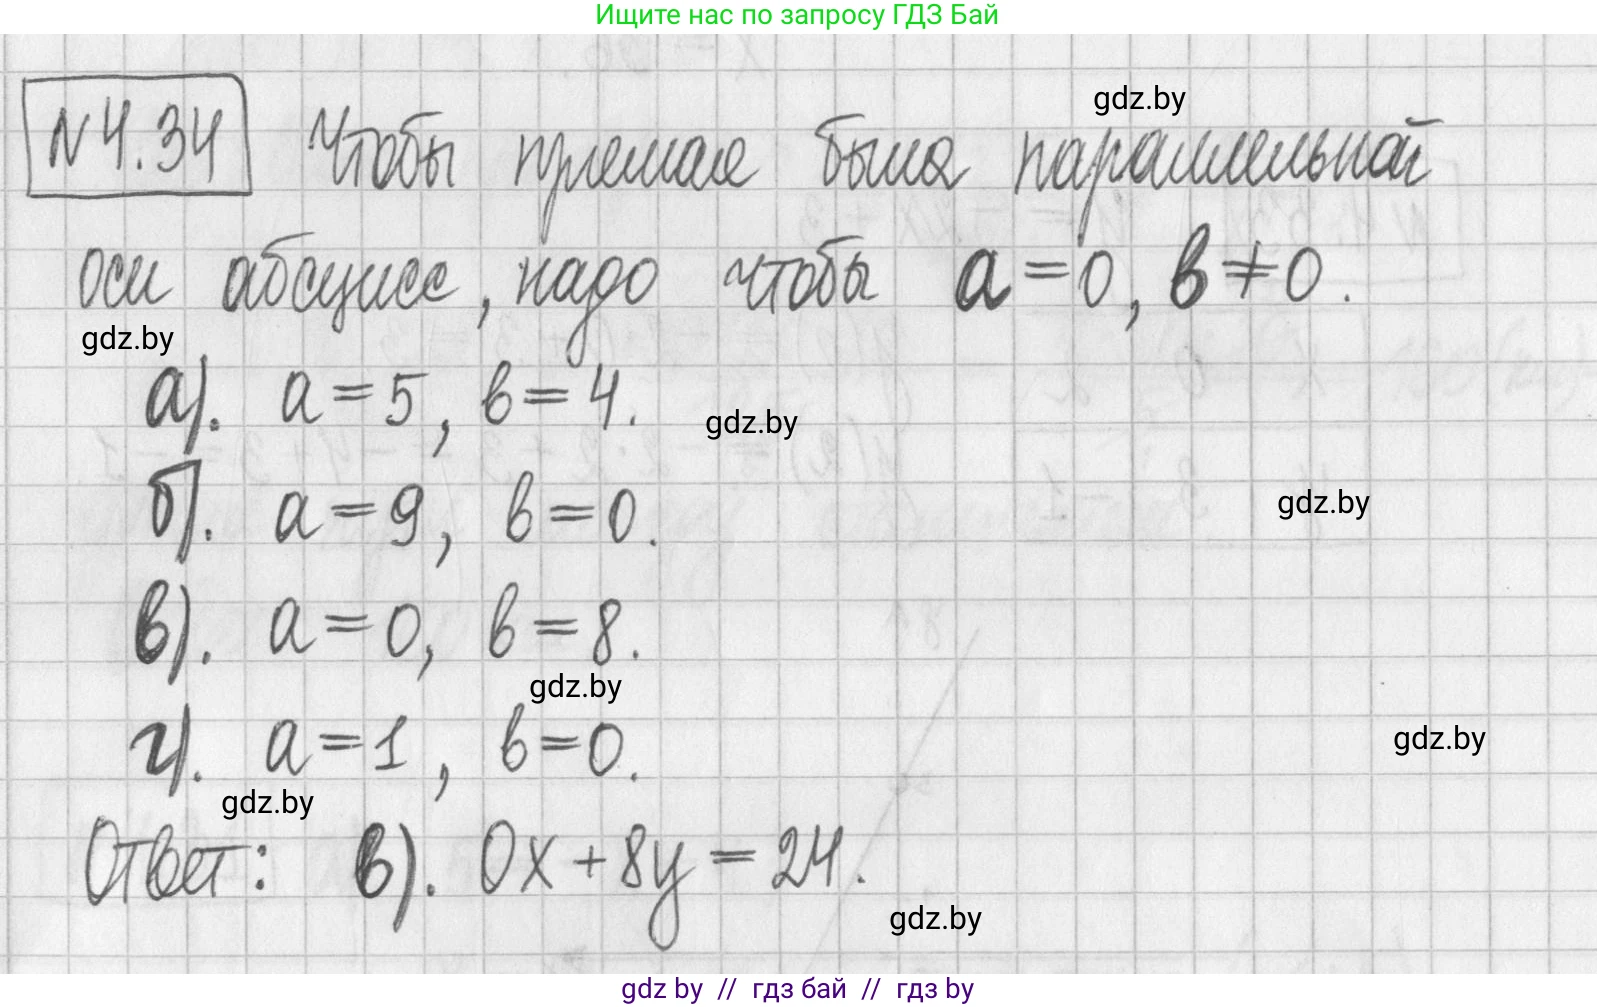 Ищите нас по запросу ГДЗ Бай
gdz.by
N4.34 Чтобы прямая была параллельной
оси абсцисс, надо чтобы a=0, b≠0.
gdz.by
а). a=5, b=4.
gdz.by
б). a=9, b=0.
gdz.by
в). a=0, b=8.
gdz.by
г). a=1, b=0.
gdz.by
gdz.by
Ответ: в). 0x+8y=24.
gdz.by
gdz by // гдз бай // гдз by